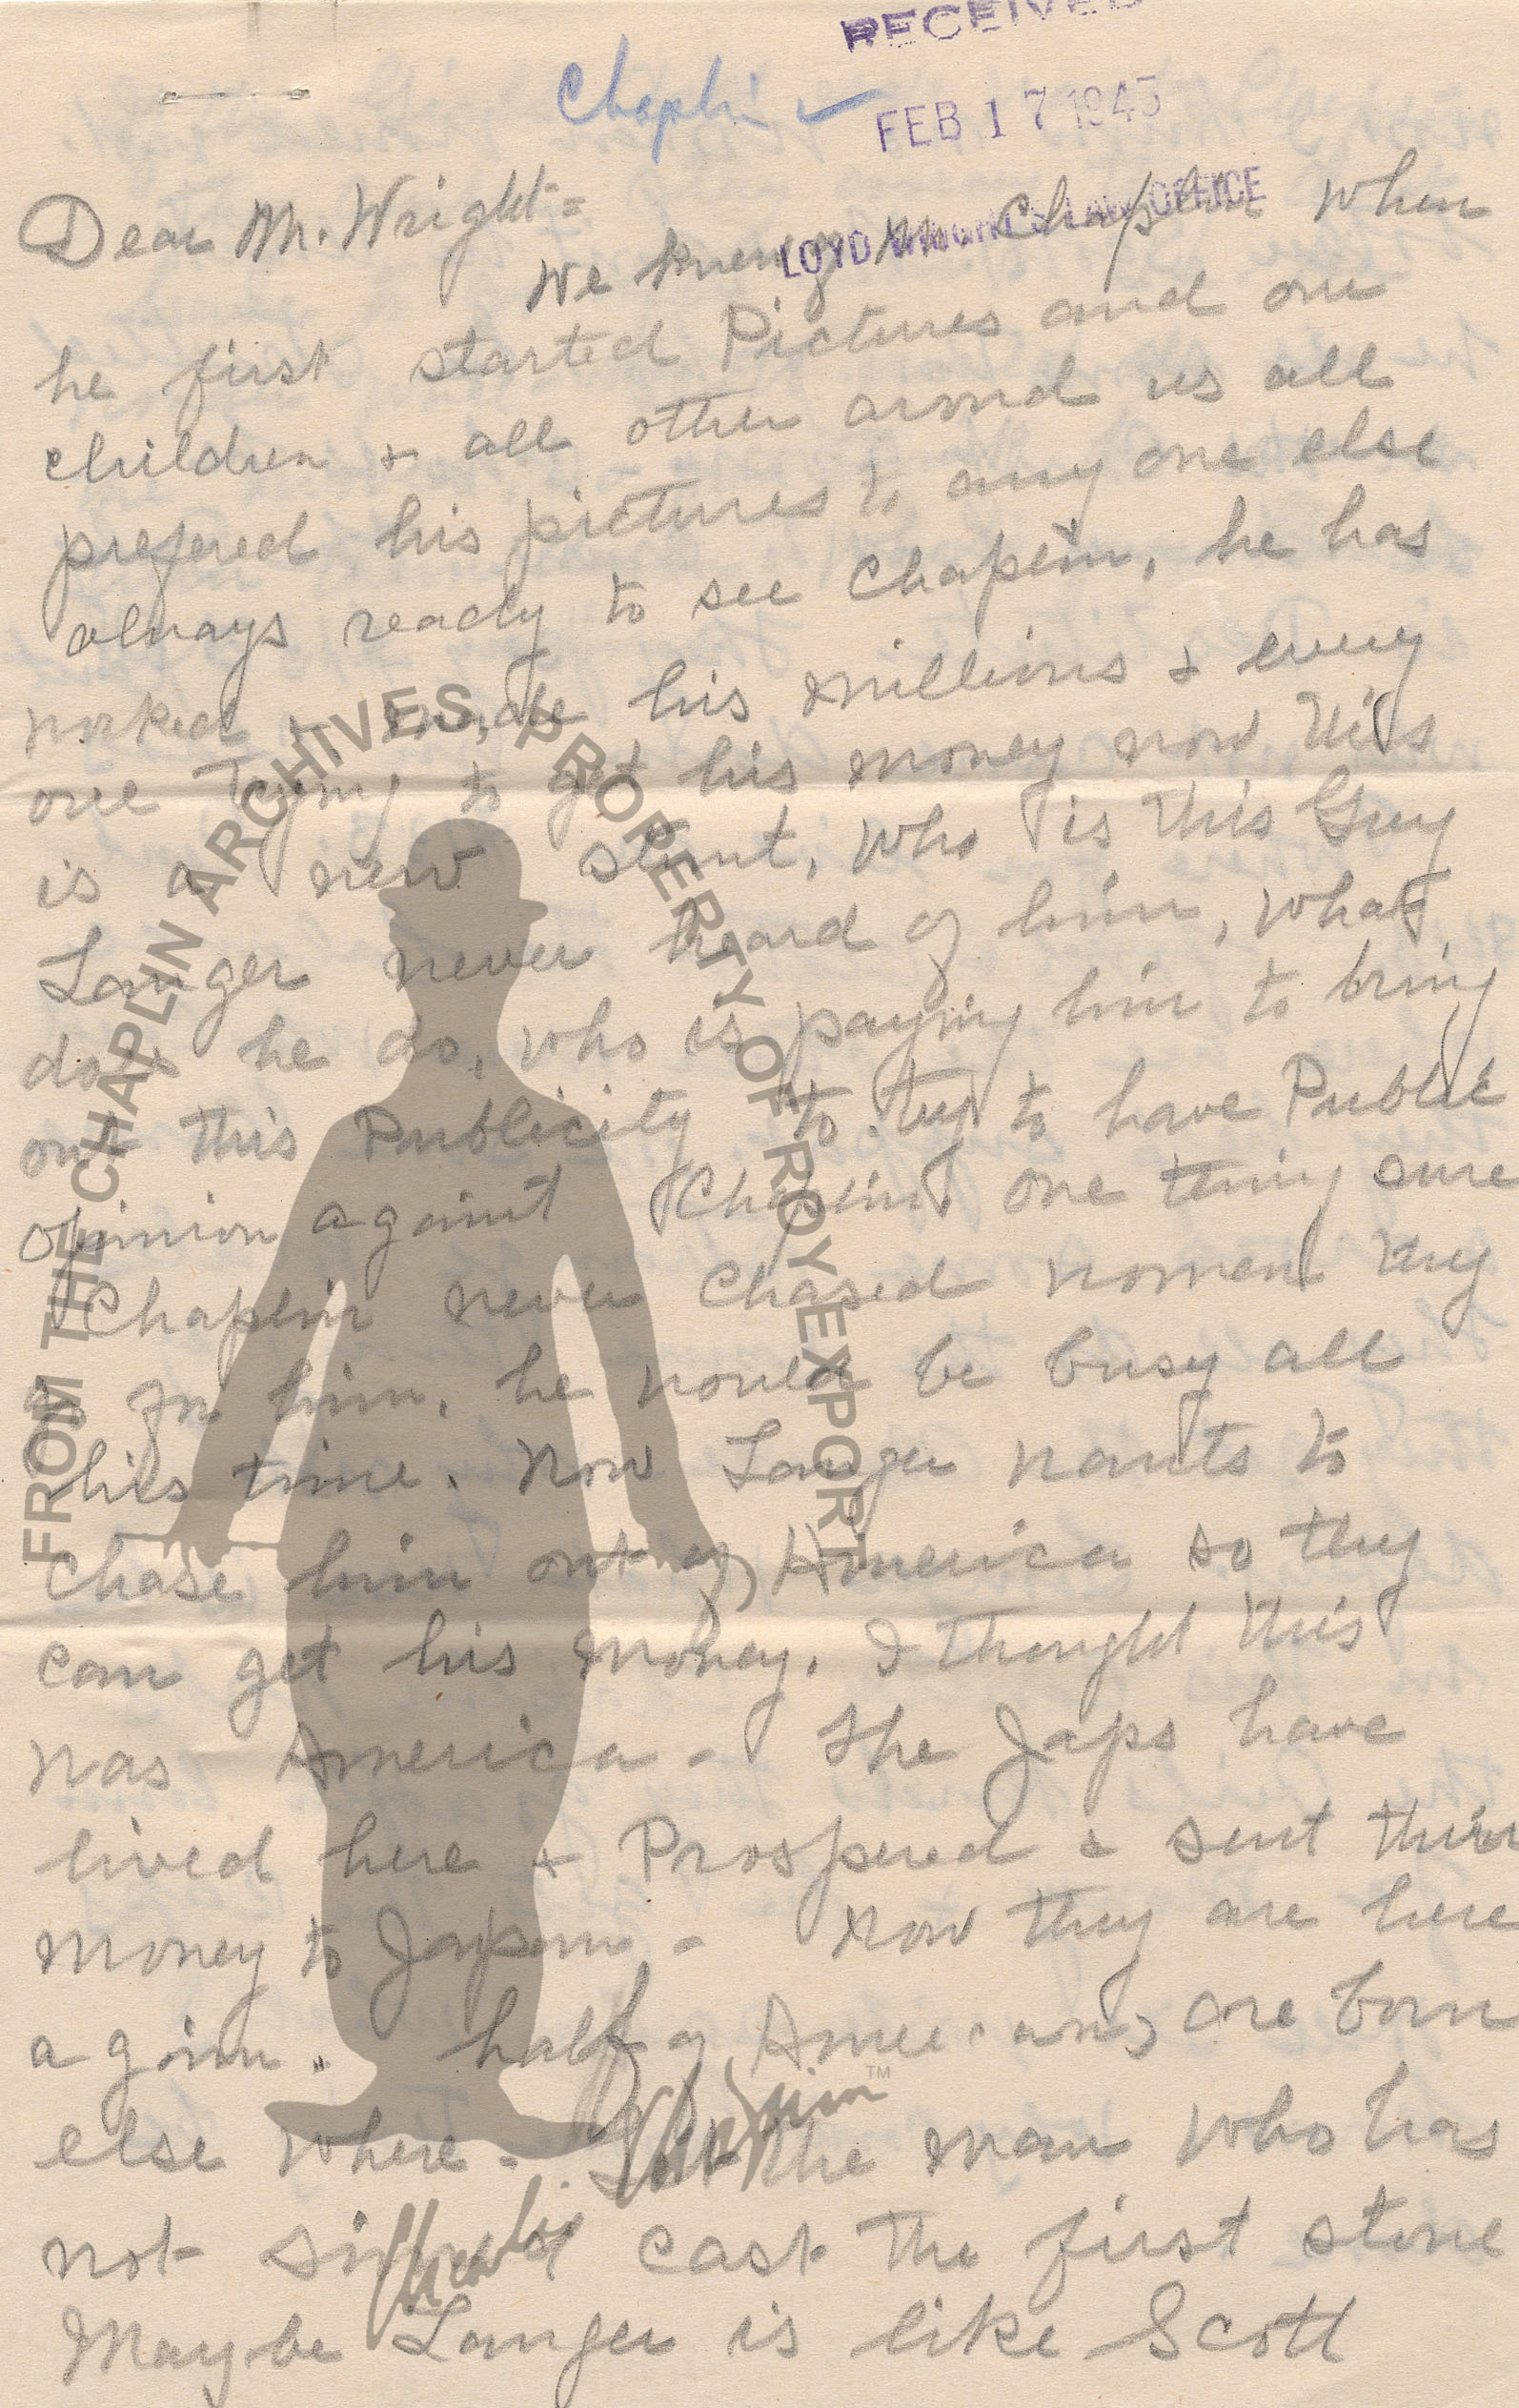 RECEIVED
Chaplin ✓
FEB 17 1945
LOYD WRIGHT'S LAW OFFICE
Dear Mr. Wright =
We knew Mr Chaplin when
he first started Pictures and our
children + all other around us all
prefered his pictures to any one else
always ready to see Chaplin, he has
worked + made his millions + every
one trying to get his money now this
is a new stunt, who is this Guy
Langer never heard of him, what
does he do, who is paying him to bring
out this Publicity to try to have Public
opinion against Chaplin one thing sure
Chaplin never chased women they
go for him, he would be busy all
his time. Now Langer wants to
chase him out of America so they
can get his money. I thought this
was America - The Japs have
lived here + Prospered & sent their
money to Japan - now they are here
again. half of Americans are born
else where - Let the man who has
not sinned cast the first stone
Maybe Langer is like Scott
FROM THE CHAPLIN ARCHIVES, PROPERTY OF ROY EXPORT
Charlie Chaplin™